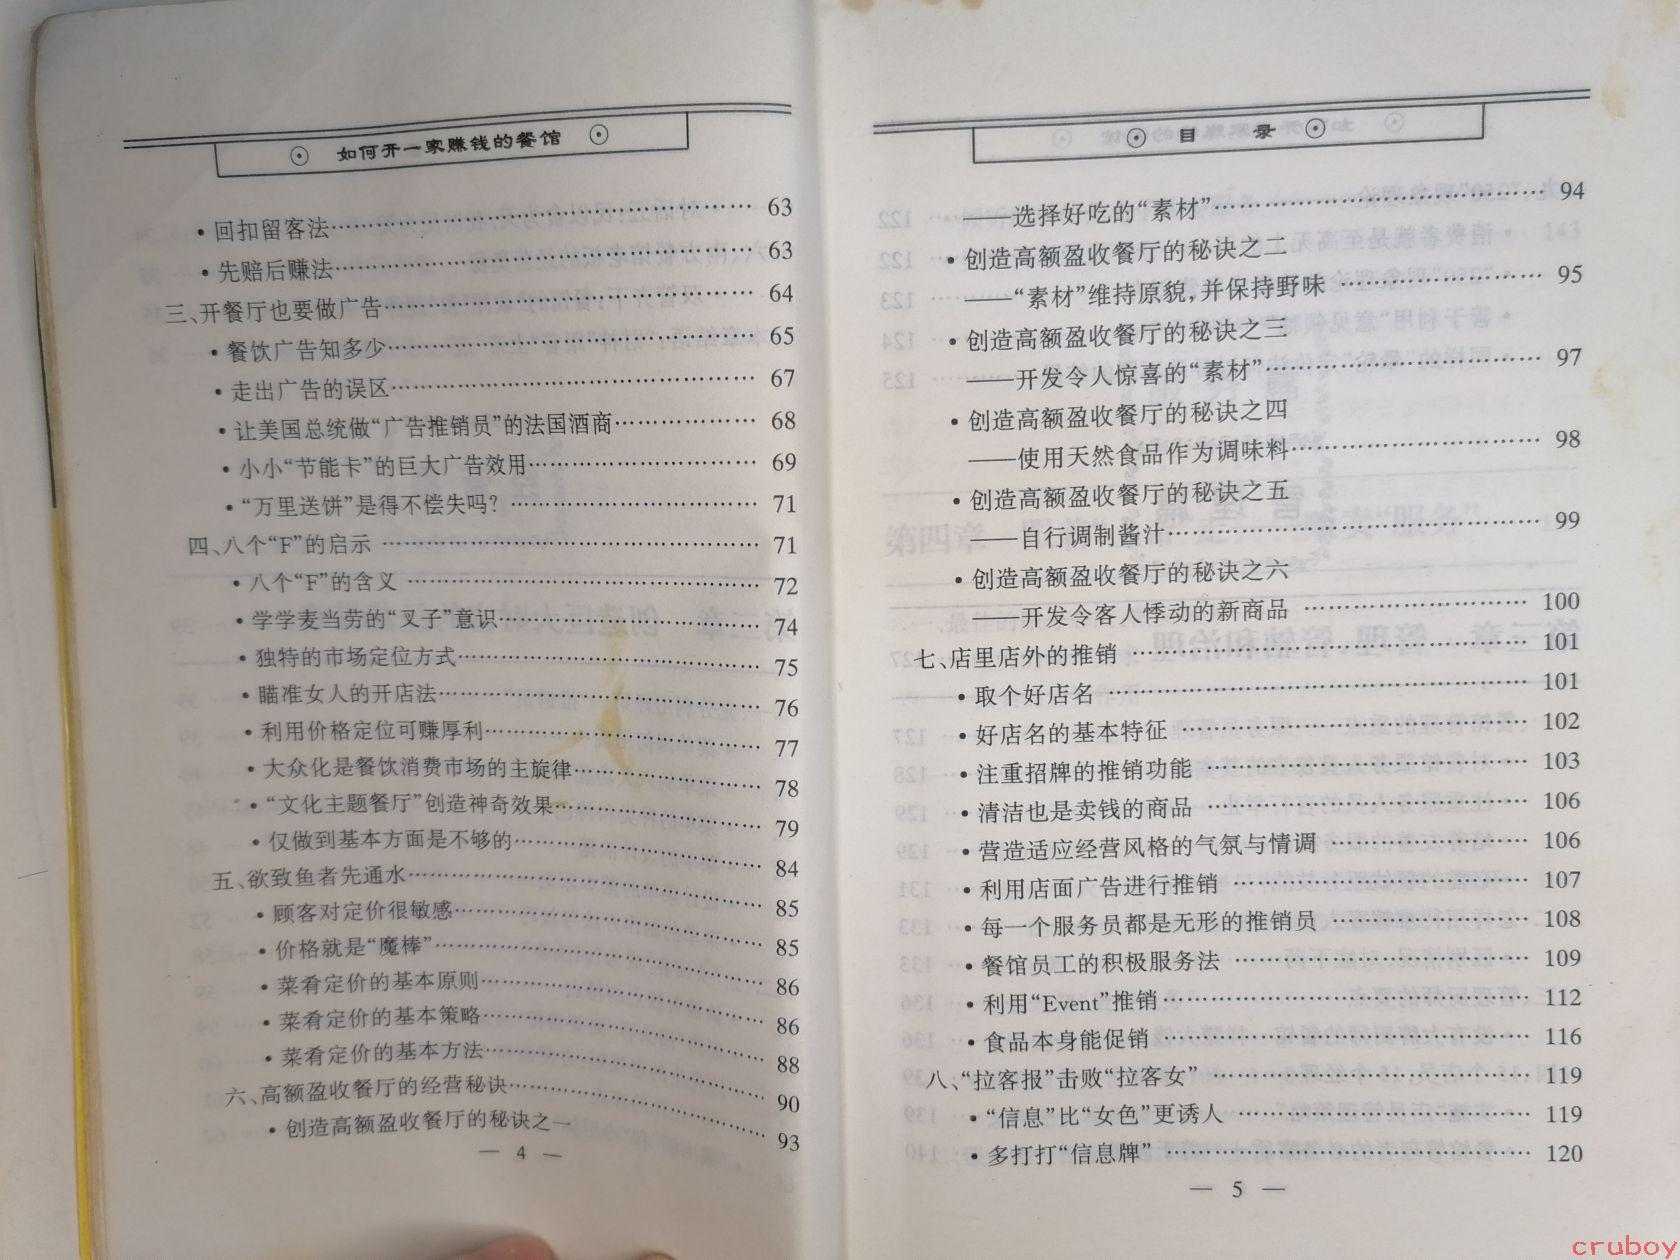 如何开一家赚钱的餐馆
•回扣留客法…………………………………………… 63
•先赔后赚法…………………………………………… 63
三、开餐厅也要做广告…………………………………… 64
•餐饮广告知多少……………………………………… 65
•走出广告的误区……………………………………… 67
•让美国总统做“广告推销员”的法国酒商………………… 68
•小小“节能卡”的巨大广告效用………………………… 69
•“万里送饼”是得不偿失吗? ………………………… 71
四、八个“F”的启示 …………………………………… 71
•八个“F”的含义 ……………………………………… 72
•学学麦当劳的“叉子”意识…………………………… 74
•独特的市场定位方式………………………………… 75
•瞄准女人的开店法…………………………………… 76
•利用价格定位可赚厚利……………………………… 77
•大众化是餐饮消费市场的主旋律…………………… 78
•“文化主题餐厅”创造神奇效果……………………… 79
•仅做到基本方面是不够的…………………………… 84
五、欲致鱼者先通水……………………………………… 85
•顾客对定价很敏感…………………………………… 85
•价格就是“魔棒”……………………………………… 86
•菜肴定价的基本原则………………………………… 86
•菜肴定价的基本策略………………………………… 88
•菜肴定价的基本方法………………………………… 90
六、高额盈收餐厅的经营秘诀…………………………… 93
•创造高额盈收餐厅的秘诀之一
— 4 —
目 录
——选择好吃的“素材”……………………………… 94
•创造高额盈收餐厅的秘诀之二
——“素材”维持原貌,并保持野味 ………………… 95
•创造高额盈收餐厅的秘诀之三
——开发令人惊喜的“素材”………………………… 97
•创造高额盈收餐厅的秘诀之四
——使用天然食品作为调味料……………………… 98
•创造高额盈收餐厅的秘诀之五
——自行调制酱汁…………………………………… 99
•创造高额盈收餐厅的秘诀之六
——开发令客人悸动的新商品 …………………… 100
七、店里店外的推销 …………………………………… 101
•取个好店名 ………………………………………… 101
•好店名的基本特征 ………………………………… 102
•注重招牌的推销功能 ……………………………… 103
•清洁也是卖钱的商品 ……………………………… 106
•营造适应经营风格的气氛与情调 ………………… 106
•利用店面广告进行推销 …………………………… 107
•每一个服务员都是无形的推销员 ………………… 108
•餐馆员工的积极服务法 …………………………… 109
•利用“Event”推销…………………………………… 112
•食品本身能促销 …………………………………… 116
八、“拉客报”击败“拉客女” …………………………… 119
•“信息”比“女色”更诱人 …………………………… 119
•多打打“信息牌” …………………………………… 120
— 5 —
cruboy